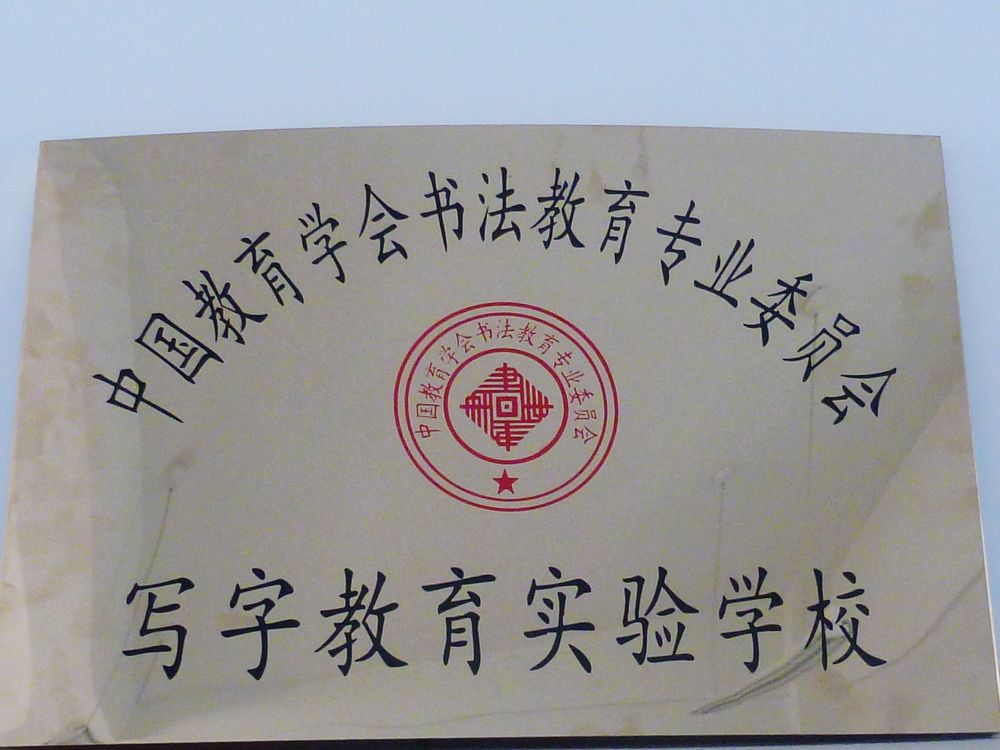 中国教育学会书法教育专业委员会
中国教育学会书法教育专业委员会
写字教育实验学校